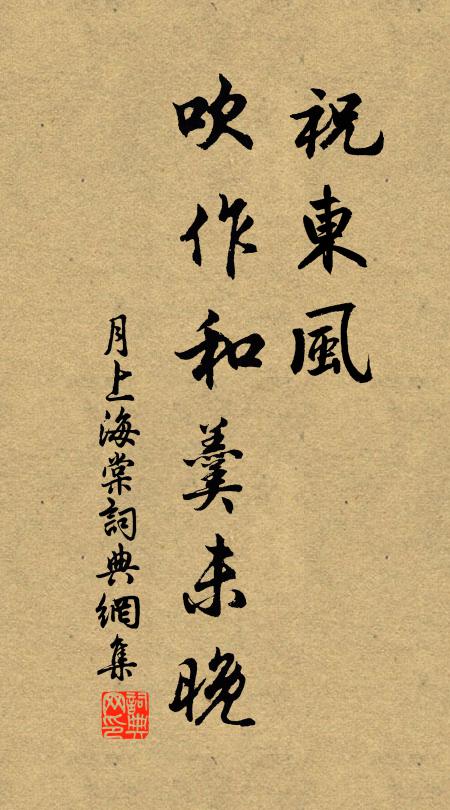 祝東風
吹作和羹未晚
月上海棠詞典網集
詞典網印